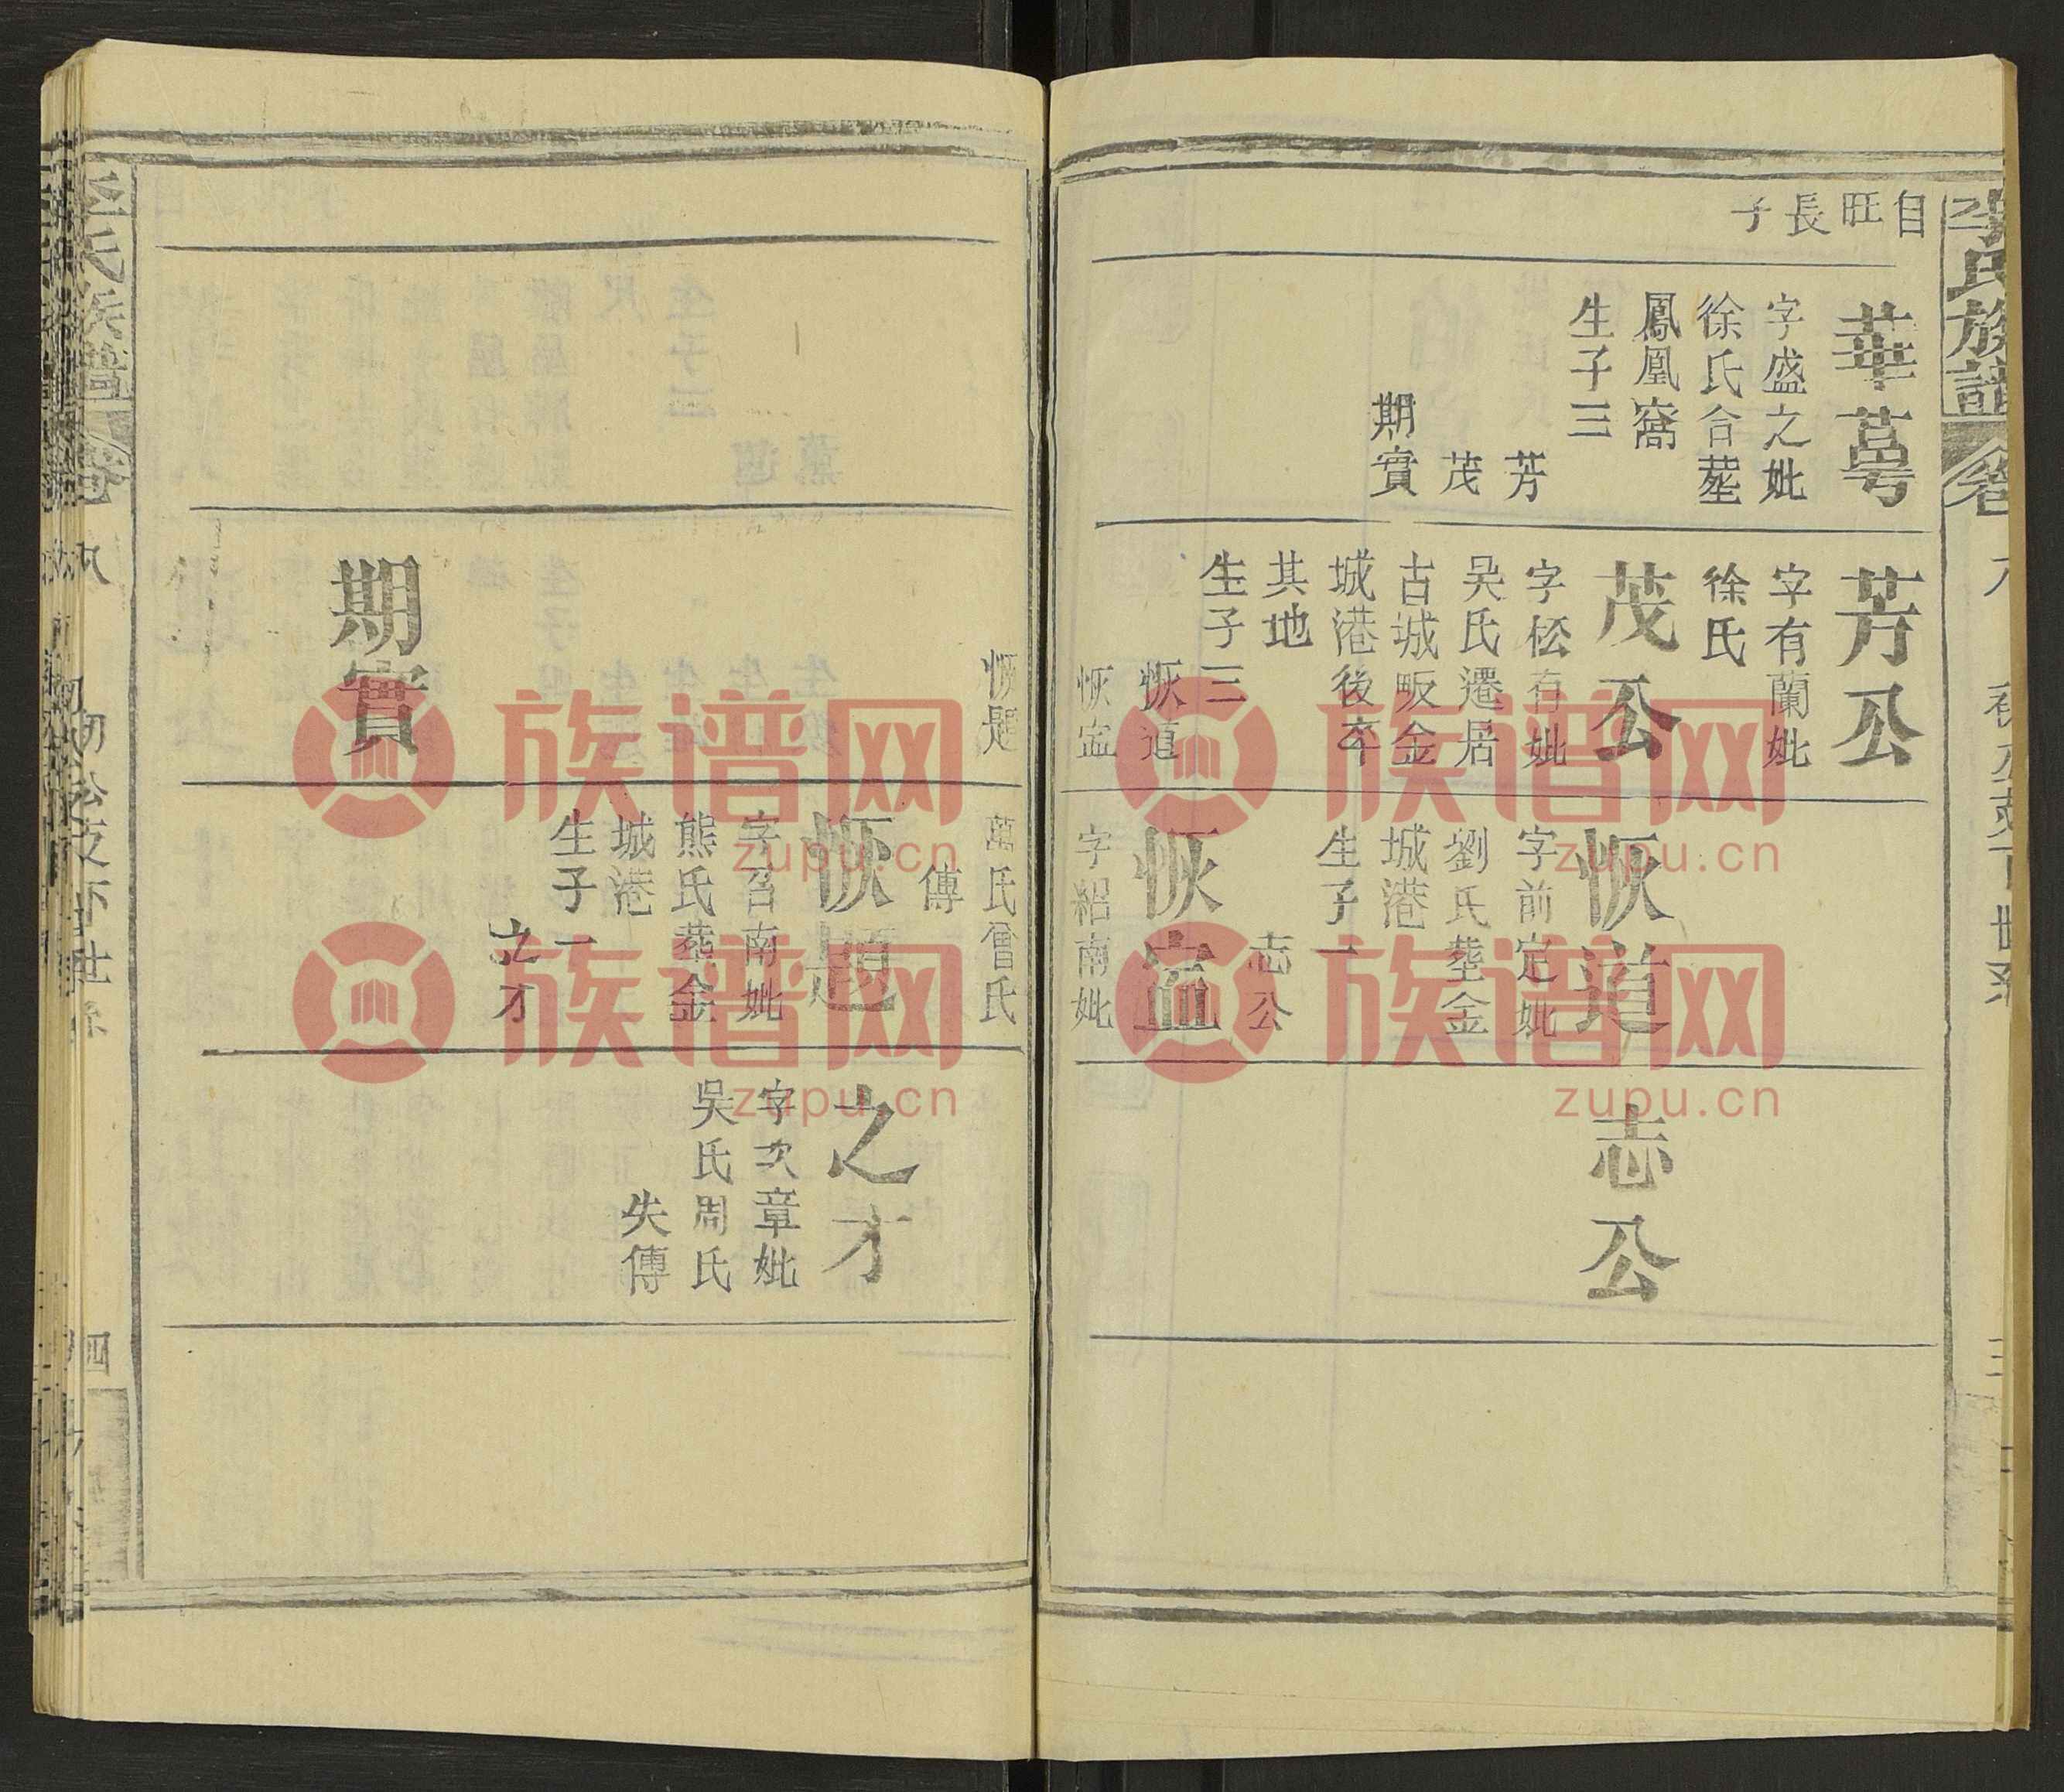 李氏族譜
卷
自旺長子
華萼
字盛之妣
徐氏合塟
鳳凰窩
生子三
芳
茂
期實
芳公
字有蘭妣
徐氏
茂公
字松有妣
吳氏遷居
古城畈金
城港後卒
其地
生子三
恢道
恢
恢道
字前定妣
劉氏塟金
城港
生子一
志公
恢
字紹南妣
志公
恢題
期實
萬氏曾氏
傳
恢題
字召南妣
熊氏塟金
城港
生子一
之才
之才
字次章妣
吳氏周氏
失傳
四
族谱网
zupu.cn
族谱网
zupu.cn
族谱网
zupu.cn
族谱网
zupu.cn